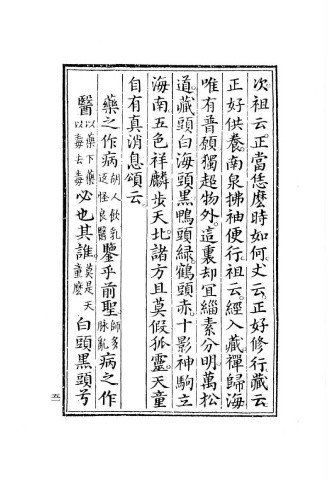 次祖云。正當恁麼時如何。丈云。正好修行。藏云。
正好供養。南泉拂袖便行。祖云。經入藏禪歸海。
唯有普願獨超物外。這裏却宜緇素分明。萬松
道。藏頭白海頭黑。鴨頭綠鶴頭赤。十影神駒立
海南。五色祥麟步天北。諸方且莫假狐靈。天童
自有真消息。頌云。
藥之作病胡人飲乳返怪良醫鑒乎前聖師多脈亂病之作
醫以藥下藥以毒去毒必也其誰莫是天童麼白頭黑頭兮
五